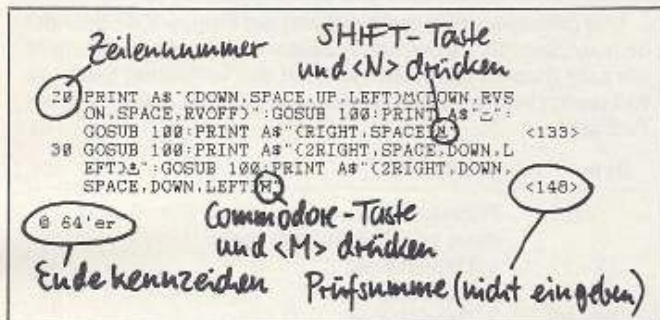 Zeilennummer
SHIFT-Taste
und <N> drücken
20 PRINT A$"(DOWN,SPACE,UP,LEFT)M(DOWN,RVS
ON,SPACE,RVOFF)":GOSUB 100:PRINT A$"":
GOSUB 100:PRINT A$"(RIGHT,SPACE)N" <133>
30 GOSUB 100:PRINT A$"(2RIGHT,SPACE,DOWN,L
EFT)":GOSUB 100:PRINT A$"(2RIGHT,DOWN,
SPACE,DOWN,LEFT)M" <148>
© 64'er
Commodore-Taste
und <M> drücken
Endekennzeichen
Prüfsumme (nicht eingeben)